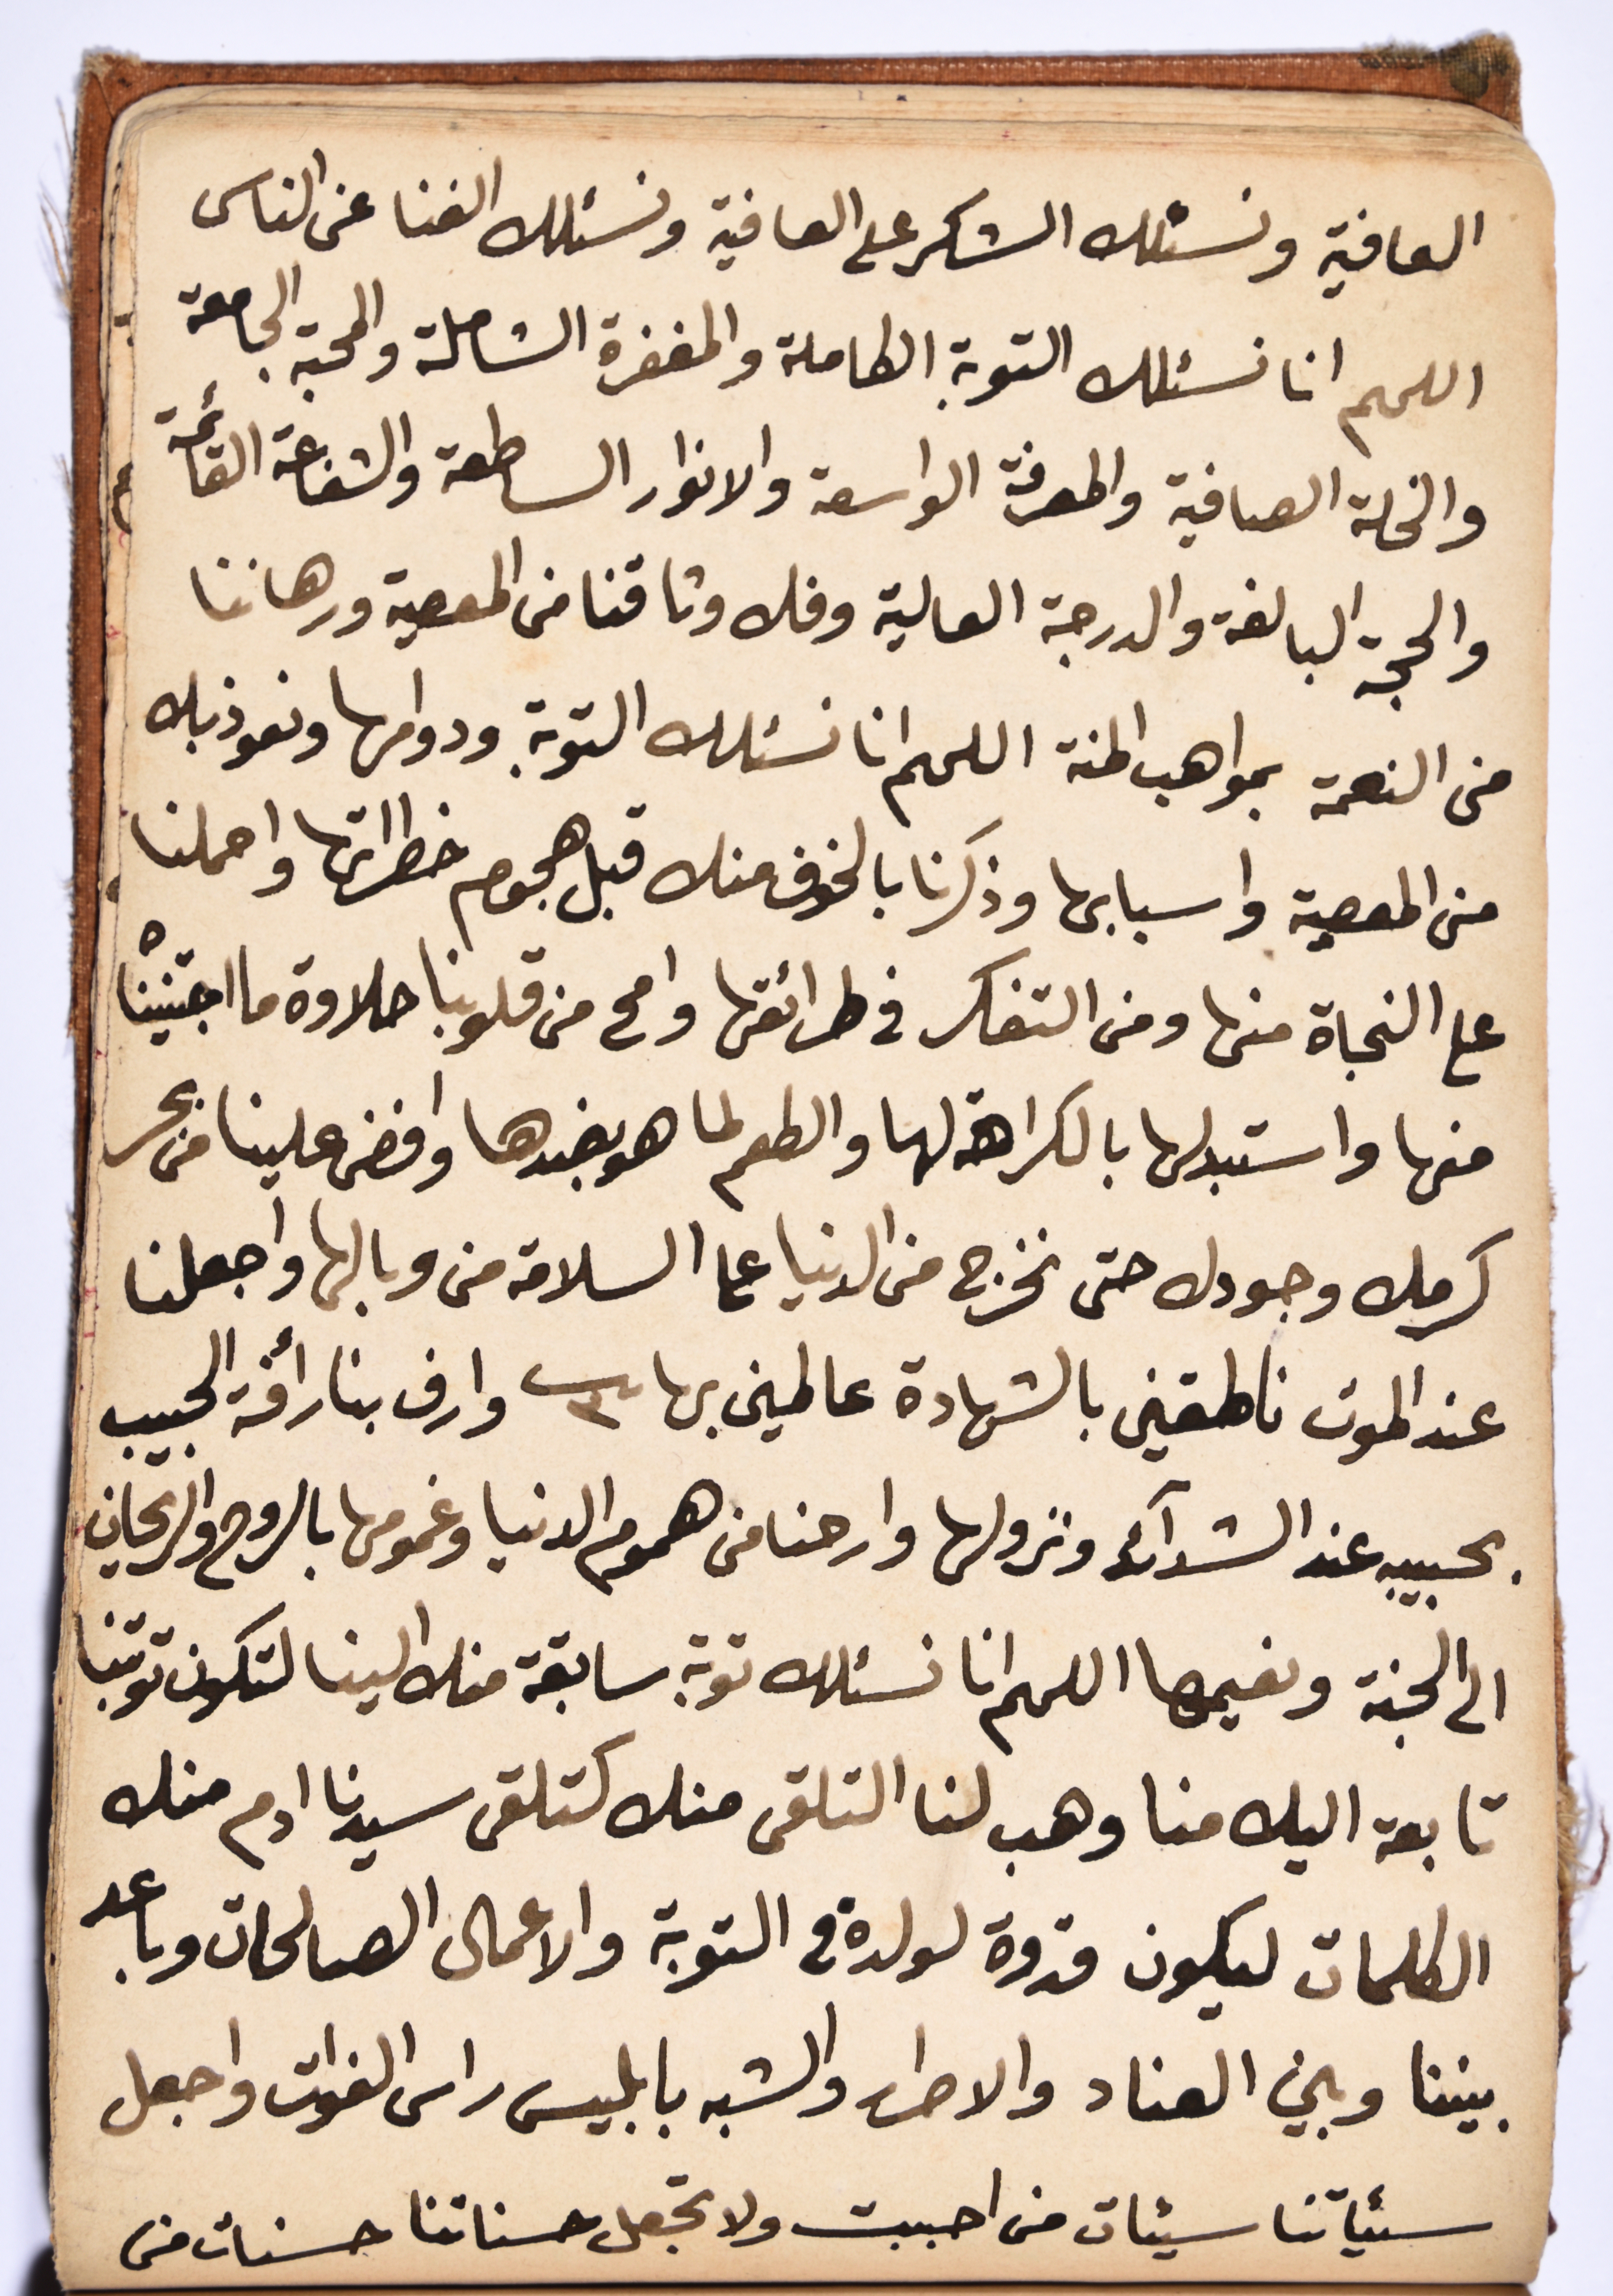 العافية ونسئلك الشكر على العافية ونسئلك الغنا عن الناس
اللهم انا نسئلك التوبة الكاملة والمغفرة الشاملة والمحبة الجامعة
والخلة الصافية والمعرفة الواسعة والانوار الساطعة والشفاعة القائمة
والحجة البالغة والدرجة العالية وفك وثاقنا من المعصية ورهاننا
من النعمة بمواهب المنة اللهم انا نسئلك التوبة ودوامها ونعوذ بك
من المعصية واسبابها وذكرنا بالخوف منك قبل هجوم خطراتها واحملنا
على النجاة منها ومن التفكر في طرائقها وامح من قلوبنا حلاوة ما اجتنيناه
منها واستبدلها بالكراهة لها والطعم لما هو بضدها وافض علينا من بحر
كرمك وجودك حتى نخرج من الدنيا على السلامة من وبالها واجعلنا
عند الموت ناطقين بالشهادة عالمين بها ٣ وارف بنا رأفة الحبيب
بحبيبه عند الشدآئد ونزولها وارحنا من هموم الدنيا وغمومها بالروح والريحان
الى الجنة ونعيمها اللهم انا نسئلك توبة سابقة منك الينا لتكون توبتنا
تابعة اليك منا وهب لنا التلقى منك كتلقى سيدنا ادم منك
الكلمات ليكون قدوة لولده في التوبة والاعمال الصالحات وباعد
بيننا وبين العناد والاصرار والشبه بابليس راس الغوات واجعل
سيئاتنا سيئات من احببت ولا تجعل حسناتنا حسنات من